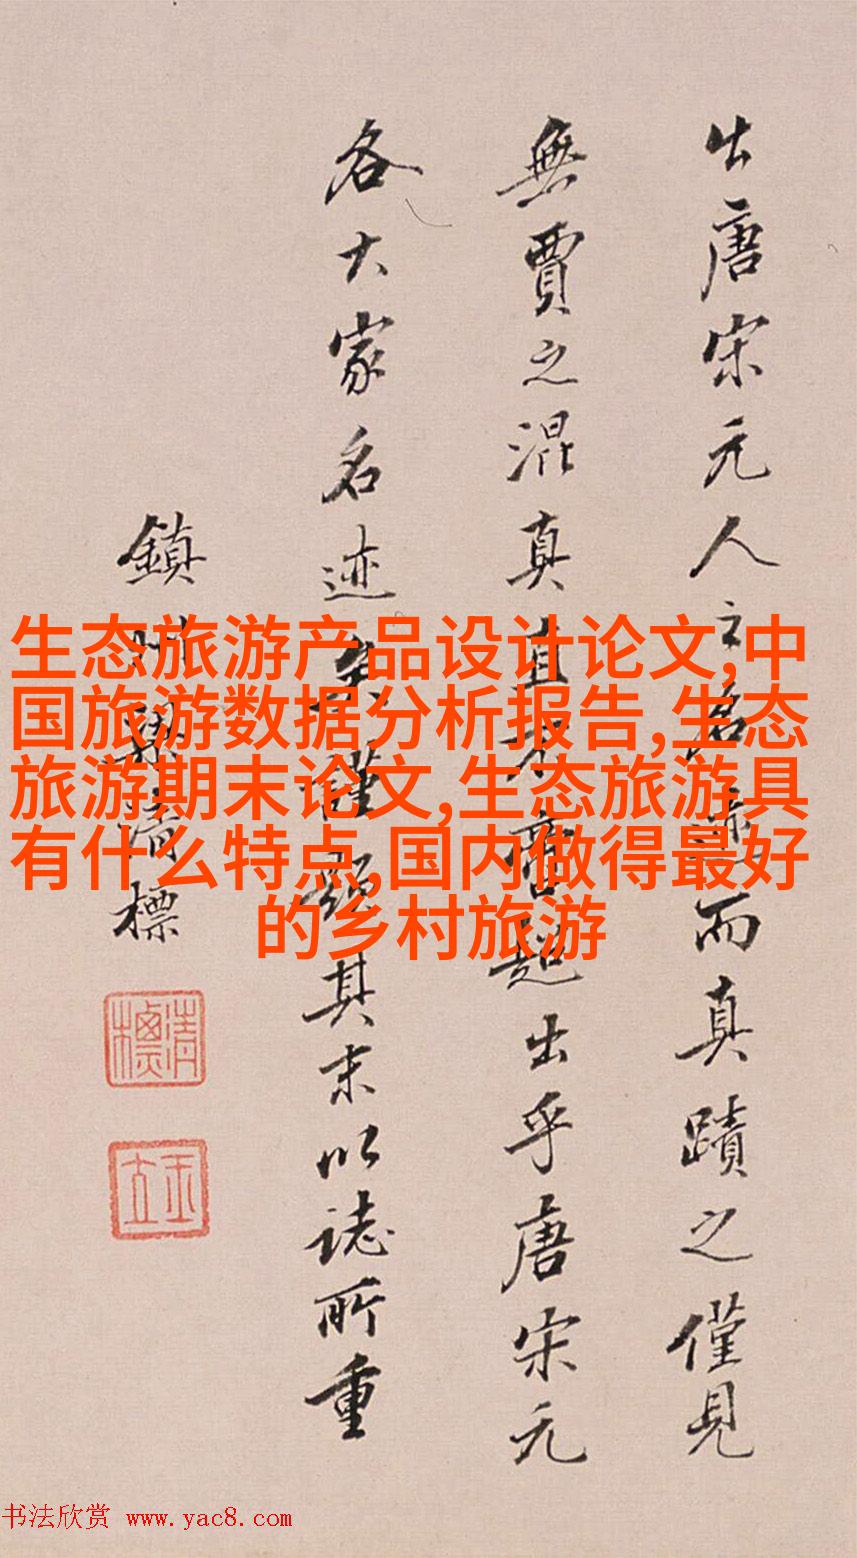 出唐宋元人之名而真蹟之僅見
無賈之混真直不啻超出乎唐宋元
各大家名迹矣謹題其末以誌所重
鎮州梁清標
清標
玉立
生态旅游产品设计论文,中
国旅游数据分析报告,生态
旅游期末论文,生态旅游具
有什么特点,国内做得最好
的乡村旅游
书法欣赏 www.yac8.com